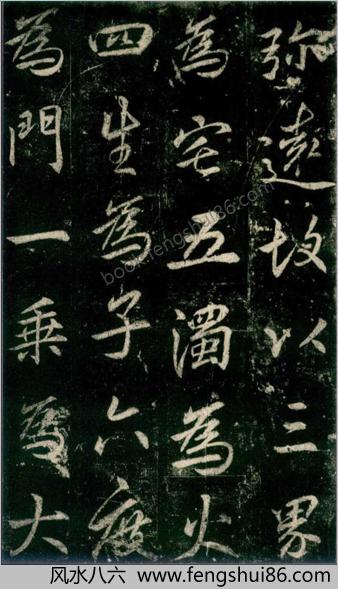 弥遠故以三界
為宅五濁為火
四生為子六度
為門一乗為大
book.fengshui86.com
风水八六 www.fengshui86.com